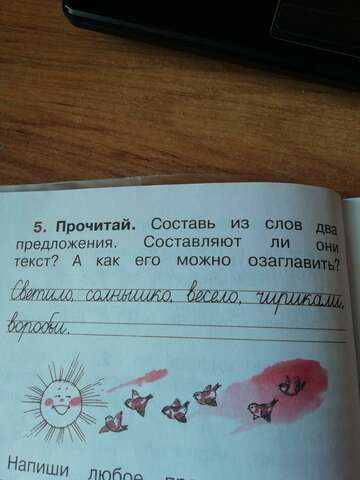 5. Прочитай. Составь из слов два
предложения. Составляют ли они
текст? А как его можно озаглавить?
Светило, солнышко, весело, чирикали,
воробьи.
Напиши любое